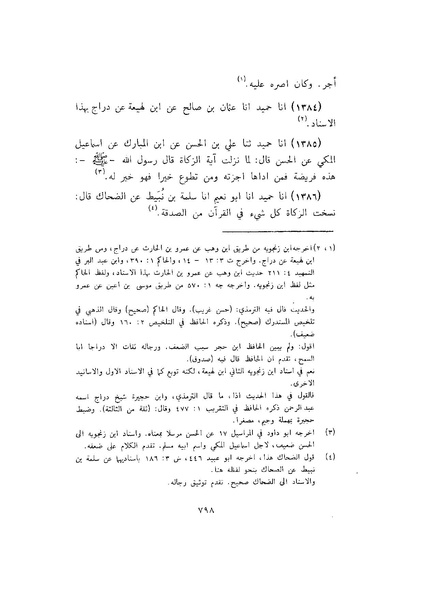 أجر. وكان اصره عليه.(١)
(١٣٨٤) انا حميد انا عثمان بن صالح عن ابن لهيعة عن دراج بهذا
الاسناد.(٢)
(١٣٨٥) انا حميد ثنا علي بن الحسن عن ابن المبارك عن اسماعيل
المكي عن الحسن قال: لما نزلت آية الزكاة قال رسول الله - ﷺ - :
هذه فريضة فمن اداها اجزته ومن تطوع خيرا فهو خير له.(٣)
(١٣٨٦) انا حميد انا ابو نعيم انا سلمة بن نُبَيط عن الضحاك قال:
نسخت الزكاة كل شيء في القرآن من الصدقة.(٤)
(١، ٢) اخرجه ابن زنجويه من طريق ابن وهب عن عمرو بن الحارث عن دراج، ومن طريق
ابن لهيعة عن دراج. واخرج ت ٣: ١٣ - ١٤، والحاكم ١: ٣٩٠، وابن عبد البر في
التمهيد ٤: ٢١١ حديث ابن وهب عن عمرو بن الحارث بهذا الاسناد، ولفظ الحاكم
مثل لفظ ابن زنجويه. واخرجه جه ١: ٥٧٠ من طريق موسى بن اعين عن عمرو
به.
والحديث قال فيه الترمذي: (حسن غريب). وقال الحاكم (صحيح) وقال الذهبي في
تلخيص المستدرك (صحيح). وذكره الحافظ في التلخيص ٢: ١٦٠ وقال (اسناده
ضعيف).
اقول: ولم يبين الحافظ ابن حجر سبب الضعف. ورجاله ثقات الا دراجا ابا
السمح، تقدم ان الحافظ قال فيه (صدوق).
نعم في اسناد ابن زنجويه الثاني ابن لهيعة، لكنه توبع كما في الاسناد الاول والاسانيد
الاخرى.
فالقول في هذا الحديث اذا، ما قال الترمذي، وابن حجيرة شيخ دراج اسمه
عبد الرحمن ذكره الحافظ في التقريب ١: ٤٧٧ وقال: (ثقة من الثالثة). وضبط
حجيرة بمهملة وجيم، مصغرا.
(٣) اخرجه ابو داود في المراسيل ١٧ عن الحسن مرسلا بمعناه. واسناد ابن زنجويه الى
الحسن ضعيف، لاجل اسماعيل المكي واسم ابيه مسلم. تقدم الكلام على ضعفه.
(٤) قول الضحاك هذا، اخرجه ابو عبيد ٤٤٦، ش ٣: ١٨٦ باسناديهما عن سلمة بن
نبيط عن الضحاك بنحو لفظه هنا.
والاسناد الى الضحاك صحيح. تقدم توثيق رجاله.
٧٩٨